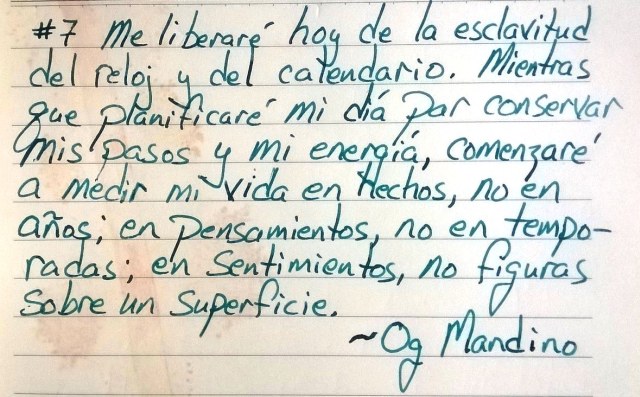 #7 Me liberaré hoy de la esclavitud
del reloj y del calendario. Mientras
que planificaré mi diá par conservar
mis pasos y mi energiá, comenzaré
a medir mi vida en Hechos, no en
años; en pensamientos, no en tempo-
radas; en sentimientos, no figuras
sobre un superficie.
~Og Mandino